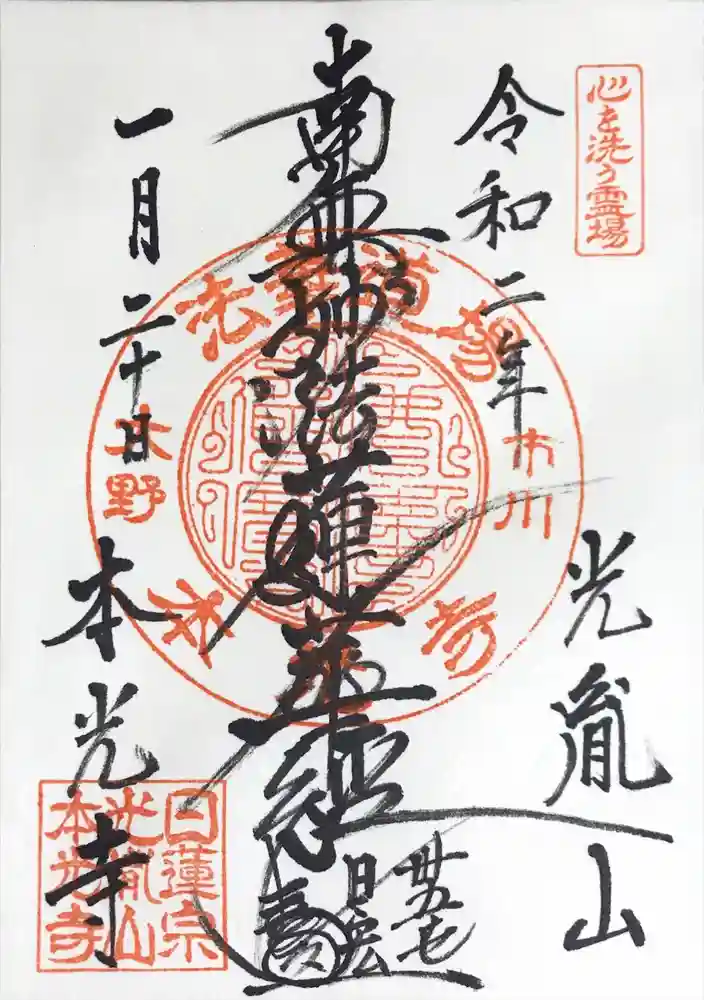 心を洗う霊場
令和二年
光胤山
南無妙法蓮華経
丗五七
日宏
一月二十日
本光寺
市川
大野
日蓮宗
光胤山
本光寺